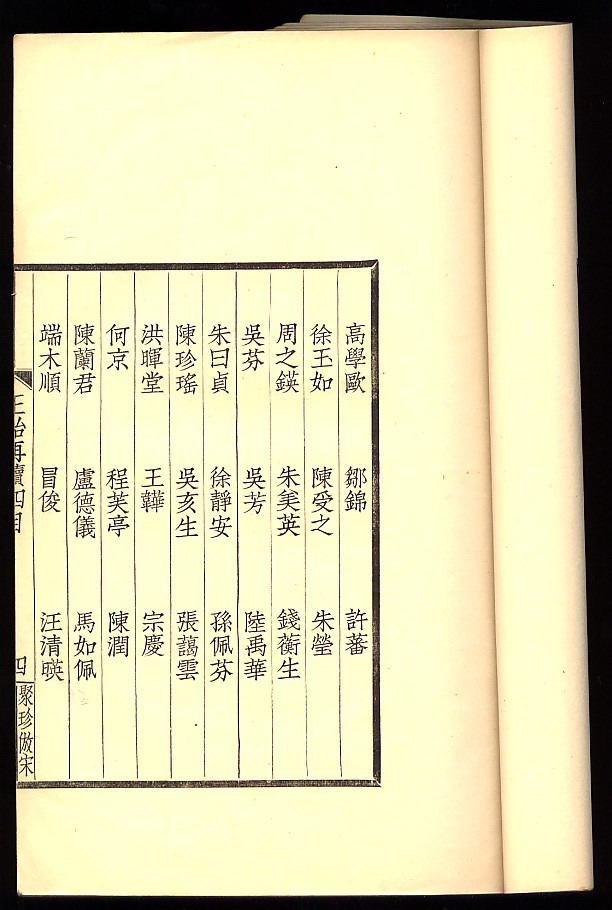 高學歐 鄒錦 許蕃
徐玉如 陳受之 朱瑩
周之鍈 朱美英 錢蘅生
吳芬 吳芳 陸禹華
朱曰貞 徐靜安 孫佩芬
陳珍瑤 吳亥生 張藹雲
洪暉堂 王韡 宗慶
何京 程芙亭 陳潤
陳蘭君 盧德儀 馬如佩
端木順 冒俊 汪清暎
再續四目 四 聚珍倣宋